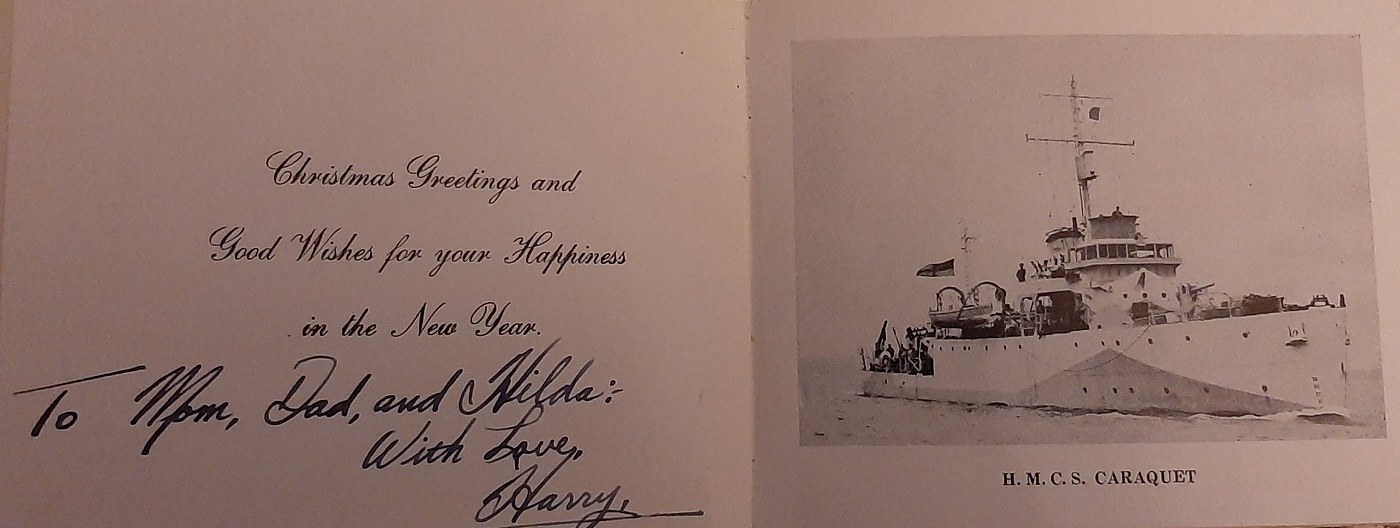 Christmas Greetings and
Good Wishes for your Happiness
in the New Year.
To Mom, Dad, and Hilda:-
With Love,
Harry,
H. M. C. S. CARAQUET